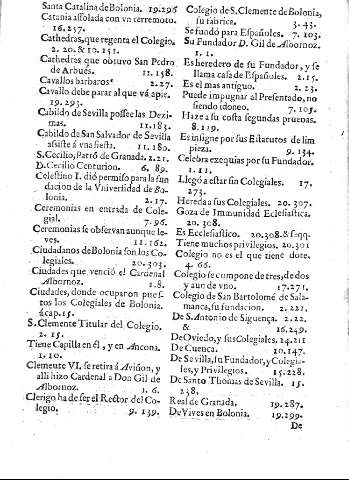 Santa Catalina de Bolonia. 19.296
Catania assolada con vn terremoto.
16.257.
Cathedras, que regenta el Colegio.
2. 20. & 10. 151.
Cathedras que obtuvo San Pedro
de Arbués. 11. 158.
Cavallos barbaros* 2. 27.
Cavallo debe parar al que vá apie.
19. 293.
Cabildo de Sevilla possee las Dezi-
mas. 11. 183.
Cabildo de San Salvador de Sevilla
assiste á una fiesta. 11. 280.
S. Cecilio, Patrõ de Granada. 2. 21.
D. Cecilio Centurion. 6. 89.
Celestino I. dió permiso para la fun
dacion de la Vniversidad de Bo-
lonia. 2. 17.
Ceremonias en entrada de Cole-
gial. 7. 96.
Ceremonias se observan aunque le-
ves. 11. 162.
Ciudadanos de Bolonia son los Co-
legiales. 20. 303.
Ciudades que venció el Cardenal
Albornoz. 1. 8.
Ciudades, donde ocuparon pues-
tos los Colegiales de Bolonia.
á cap. 15.
S. Clemente Titular del Colegio.
2. 15.
Tiene Capilla en él, y en Ancona.
1. 10.
Clemente VI. se retira á Aviñon, y
alli hizo Cardenal a Don Gil de
Albornoz. 1. 6.
Clerigo ha de ser el Rector del Co-
legio. 9. 139.
Colegio de S. Clemente de Bolonia,
su fabrica. 3. 43.
Se fundó para Españoles. 7. 103.
Su Fundador D. Gil de Albornoz.
1. 11.
Es heredero de su Fundador, y se
llama casa de Españoles. 2. 15.
Es el mas antiguo. 2. 23.
Puede impugnar al Presentado, no
siendo idoneo. 7. 105.
Haze a su costa segundas pruevas.
8. 119.
Es insigne por sus Estatutos de lim
pieza. 9. 134.
Celebra exequias por su Fundador.
1. 11.
Llegó a estar sin Colegiales. 17.
273.
Hereda a sus Colegiales. 20. 307.
Goza de Immunidad Eclesiastica.
20. 308.
Es Eclesiastico. 20. 308. & seqq.
Tiene muchos privilegios. 20. 301
Colegio no es el que tiene dote.
4. 66.
Colegio se compone de tres, de dos
y aun de vno. 17. 271.
Colegio de San Bartolomé de Sala-
manca, su fundacion. 2. 22.
De S. Antonio de Siguença. 2. 22.
& 16. 249.
De Oviedo, y sus Colegiales. 14. 211
De Cuenca. 10. 147.
De Sevilla, su Fundador, y Colegia-
les, y Privilegios. 15. 228.
De Santo Thomas de Sevilla. 15.
238.
Real de Granada. 19. 287.
De Vives en Bolonia. 19. 299.
De